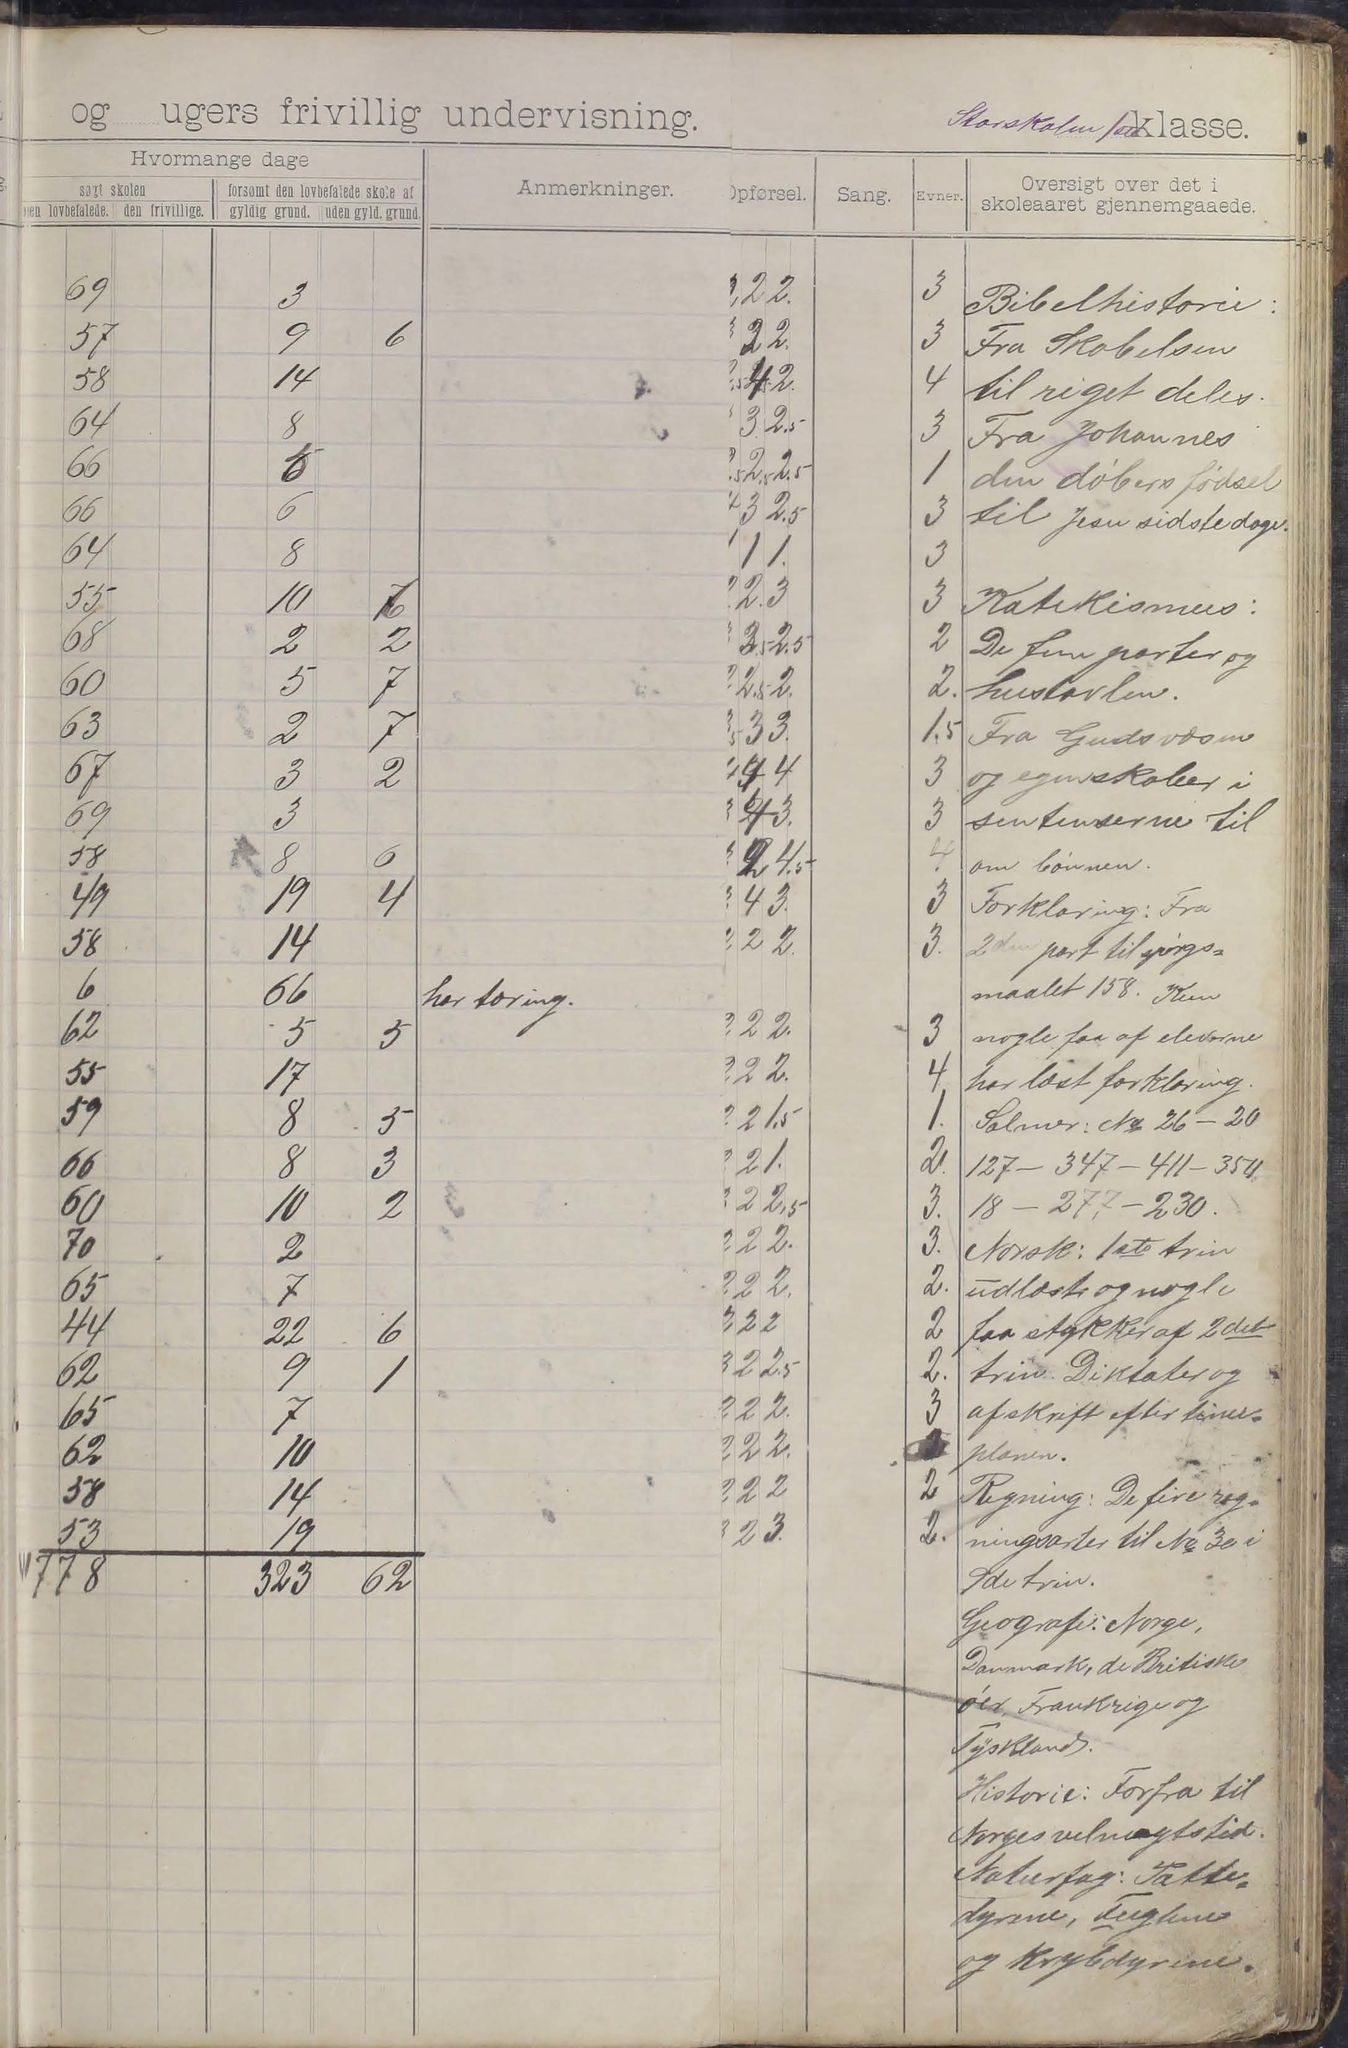 og ugers frivillig undervisning. Storskolen klasse.
Hvormange dage
søgt skolen
forsømt den lovbefalede skole af
den lovbefalede. den frivillige. gyldig grund. uden gyld. grund.
Anmerkninger.
Opførsel. Sang. Evner.
Oversigt over det i
skoleaaret gjennemgaaede.
69 3 2 2. 3 Bibelhistorie:
57 9 6 2 2. 3 Fra Skabelsen
58 14 4 2. 4 til riget deles.
64 8 3 2.5 3 Fra Johannes
66 5 2.5 2.5 1 den døbers fødsel
66 6 4 3 2.5 3 til Jesu sidste dage.
64 8 1 1 1. 3
55 10 6 2 2. 3 3 Katekismus:
68 2 2 3.5 2.5 2 De fem parter og
60 5 7 2 2.5 2. 2. hustavlen.
63 2 7 3 3. 1.5 Fra Guds væsen
67 3 2 4 4 3 og egenskaber i
69 3 3 4 3. 3 sentenserne til
58 8 6 3 2 4.5 4 om bønnen.
49 19 4 4 3. 3 Forklaring: Fra
58 14 2 2 2. 3. 2den part til spørgs=
6 66 har tæring. maalet 158. Kun
62 5 5 2 2 2. 3 nogle faa af eleverne
55 17 2 2 2. 4 har læst forklaring.
59 8 5 2 2 1.5 1. Salmer: No 26 - 20
66 8 3 3 2 1. 2. 127 - 347 - 411 - 354
60 10 2 3 2 2.5 3. 18 - 277 - 230.
70 2 2 2 2. 3. Norsk: 1ste trin
65 7 2 2 2. 2. udlæst og nogle
44 22 6 3 2 2 2 faa stykker af 2det
62 9 1 3 2 2.5 2. trin. Diktater og
65 7 2 2 2. 3 afskrift efter timer=
62 10 2 2 2. planen.
58 14 2 2 2 2 Regning: De fire reg=
53 19 3 2 3. 2. ningsarter til No 30 i
778 323 62 3de trin.
Geografi: Norge,
Danmark, de Britiske
øer, Frankrige og
Tyskland.
Historie: Forfra til
Norges velmagtstid.
Naturfag: Patte=
dyrene, Fuglene
og krybdyrene.